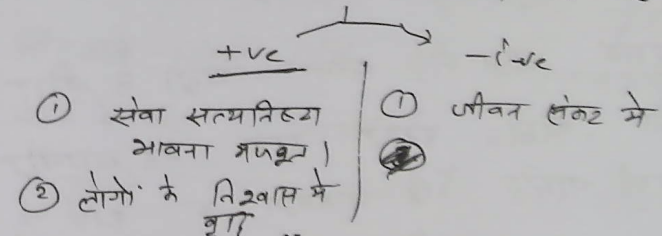 +ve
① सेवा सत्यनिष्ठा
भावना मजबूत।
② लोगों के विश्वास में
वृद्धि
-ive
① जीवन संकट में